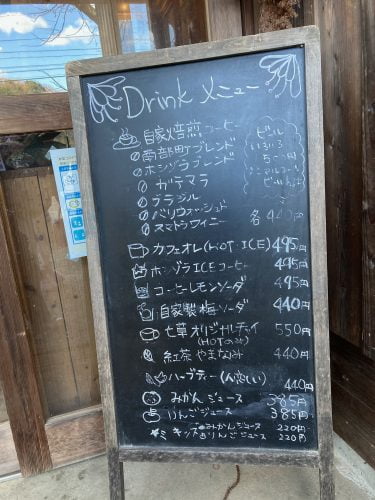 Drink メニュー
自家焙煎コーヒー
南部町ブレンド
ホンゾラブレンド
ガテマラ
ブラジル
バリウォッシュド
スマトラワイニー 各440円
ビール
いろいろ
カフェオレ(HOT ICE) 495円
ホンゾラICEコーヒー 495円
コーヒーレモンソーダ 495円
自家製梅ソーダ 440円
七草オリジナルチャイ 550円
(HOTのみ)
紅茶 やまなみ 440円
ハーブティー 440円
みかんジュース 385円
りんごジュース 385円
キッズ みかんジュース 220円
りんごジュース 220円